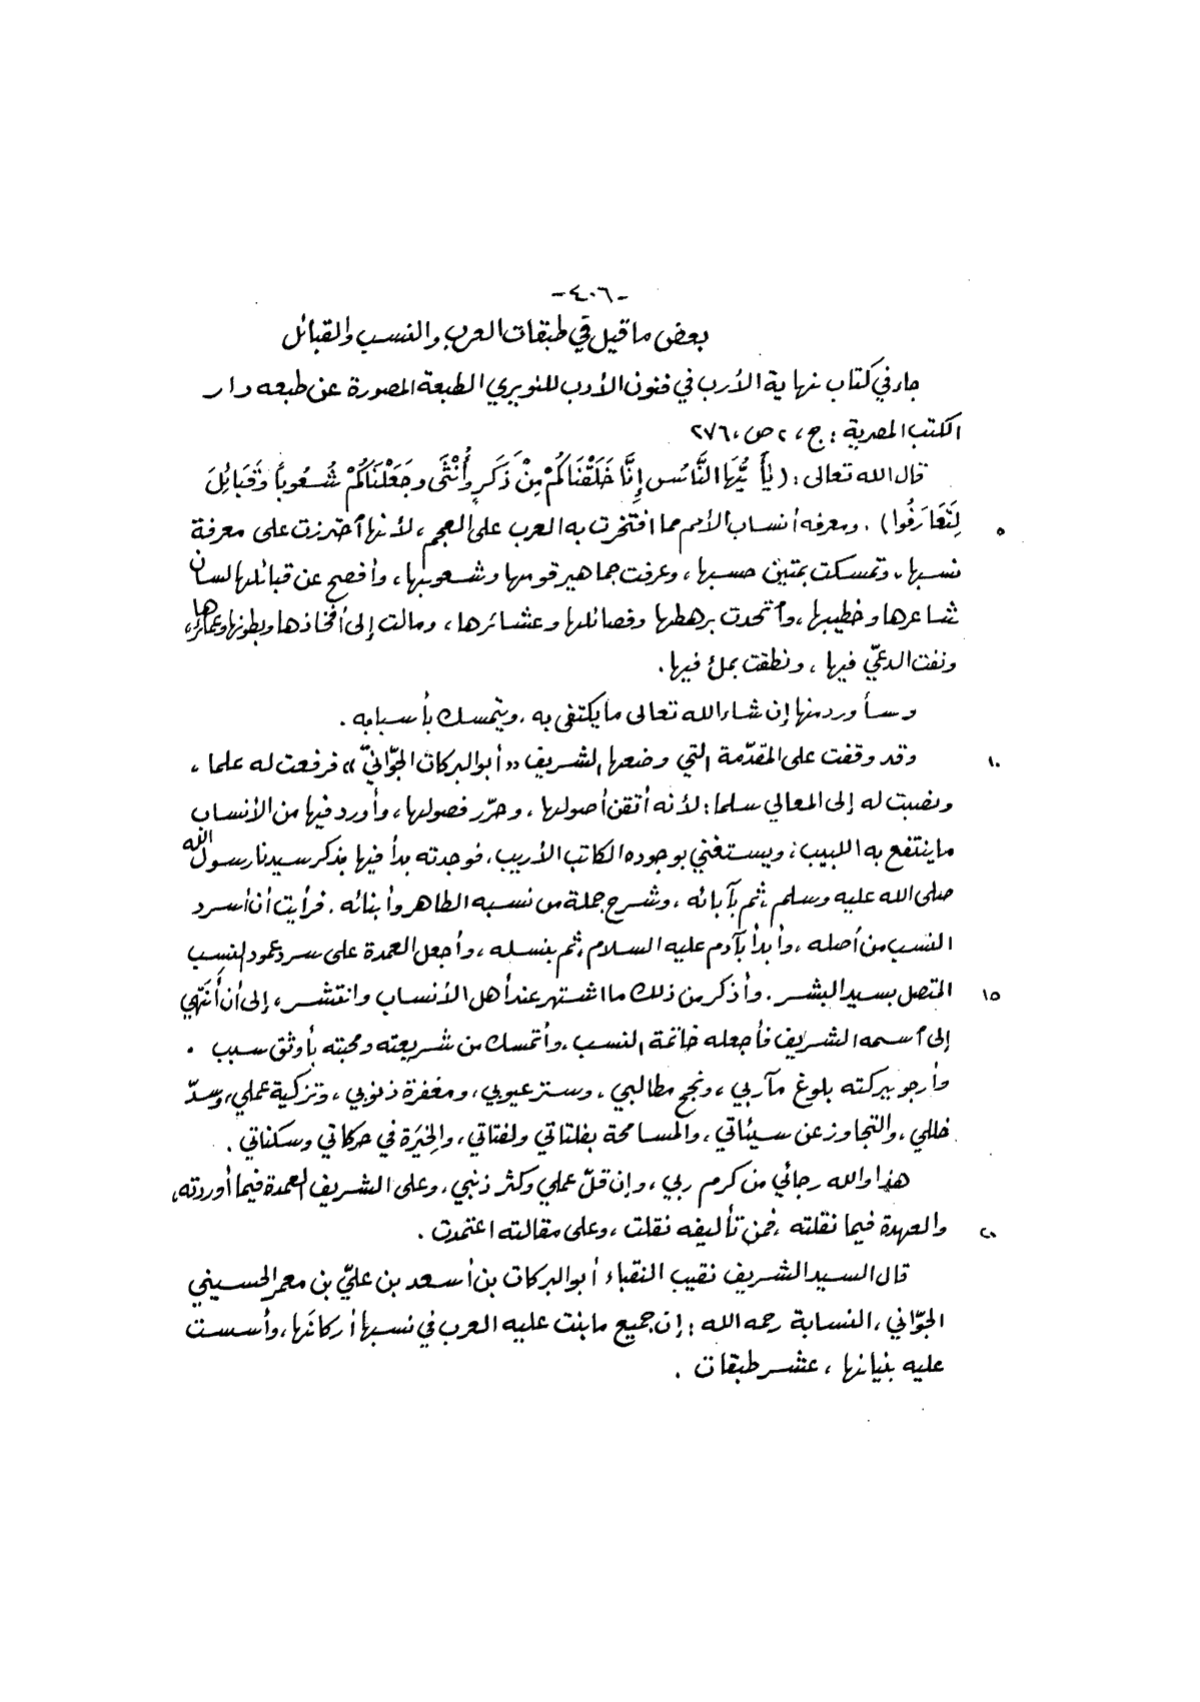 -٤٠٦-
بعض ما قيل في طبقات العرب والنسب والقبائل
جاء في كتاب نهاية الأرب في فنون الأدب للنويري الطبعة المصورة عن طبعه دار
الكتب المصرية : ج، ٢ ص، ٢٧٦
قال الله تعالى : ( يَأَيُّهَا النَّاسُ إِنَّا خَلَقْنَاكُمْ مِنْ ذَكَرٍ وَأُنْثَى وجَعَلْنَاكُمْ شُعُوباً وَقَبَائِلَ
٥ لِتَعَارَفُوا) . ومعرفه أنساب الأمم مما افتخرت به العرب على العجم ، لأنها احترزت على معرفة
نسبها ، وتمسكت بمتين حسبها ، وعرفت جماهير قومها وشعوبها ، وأفصح عن قبائلها لسان
شاعرها وخطيبها ، واتحدت برهطها وفصائلها وعشائرها ، ومالت إلى أفخاذها وبطونها وعمائرها ،
ونفت الدعيّ فيها ، ونطقت بملء فيها .
وسأورد منها إن شاء الله تعالى ما يكتفى به ، ويتمسك بأسبابه .
١٠ وقد وقفت على المقدّمة التي وضعها الشريف «أبو البركات الجوّانيّ» فرفعت له علما ،
ونصبت له إلى المعالي سلما : لأنه أتقن أصولها ، وحرّر فصولها ، وأورد فيها من الأنساب
ما ينتفع به اللبيب ؛ ويستغني بوجوده الكاتب الأريب . فوجدته بدأ فيها بذكر سيدنا رسول الله
صلى الله عليه وسلم ، ثم بآبائه ، وشرح جملة من نسبه الطاهر وأبنائه . فرأيت أن أسرد
النسب من أصله ، وأبدأ بآدم عليه السلام ، ثم بنسله ، وأجعل العمدة على سرد عمود النسب
١٥ المتصل بسيد البشر . وأذكر من ذلك ما اشتهر عند أهل الأنساب وانتشر ، إلى أن أَنتهي
إلى اسمه الشريف فأجعله خاتمة النسب ، وأتمسك من شريعته ومحبته بأوثق سبب .
وأرجو ببركته بلوغ مآربي ، ونجح مطالبي ، وستر عيوبي ، ومغفرة ذنوبي ، وتزكية عملي ، وسدّ
خللي ، والتجاوز عن سيئاتي ، والمسامحة بفلتاتي ولفتاتي ، والخِيَرة في حركاتي وسكناتي .
هذا والله رجائي من كرم ربي ، وإن قلّ عملي وكثر ذنبي ، وعلى الشريف العمدة فيما أوردته ،
٢٠ والعهدة فيما نقلته ، فمن تأليفه نقلت ، وعلى مقالته اعتمدت .
قال السيد الشريف نقيب النقباء أبو البركات بن أسعد بن عليّ بن معمر الحسيني
الجوّاني ، النسابة رحمه الله : إن جميع ما بنت عليه العرب في نسبها أركانَها ، وأسست
عليه بنيانها ، عشر طبقات .